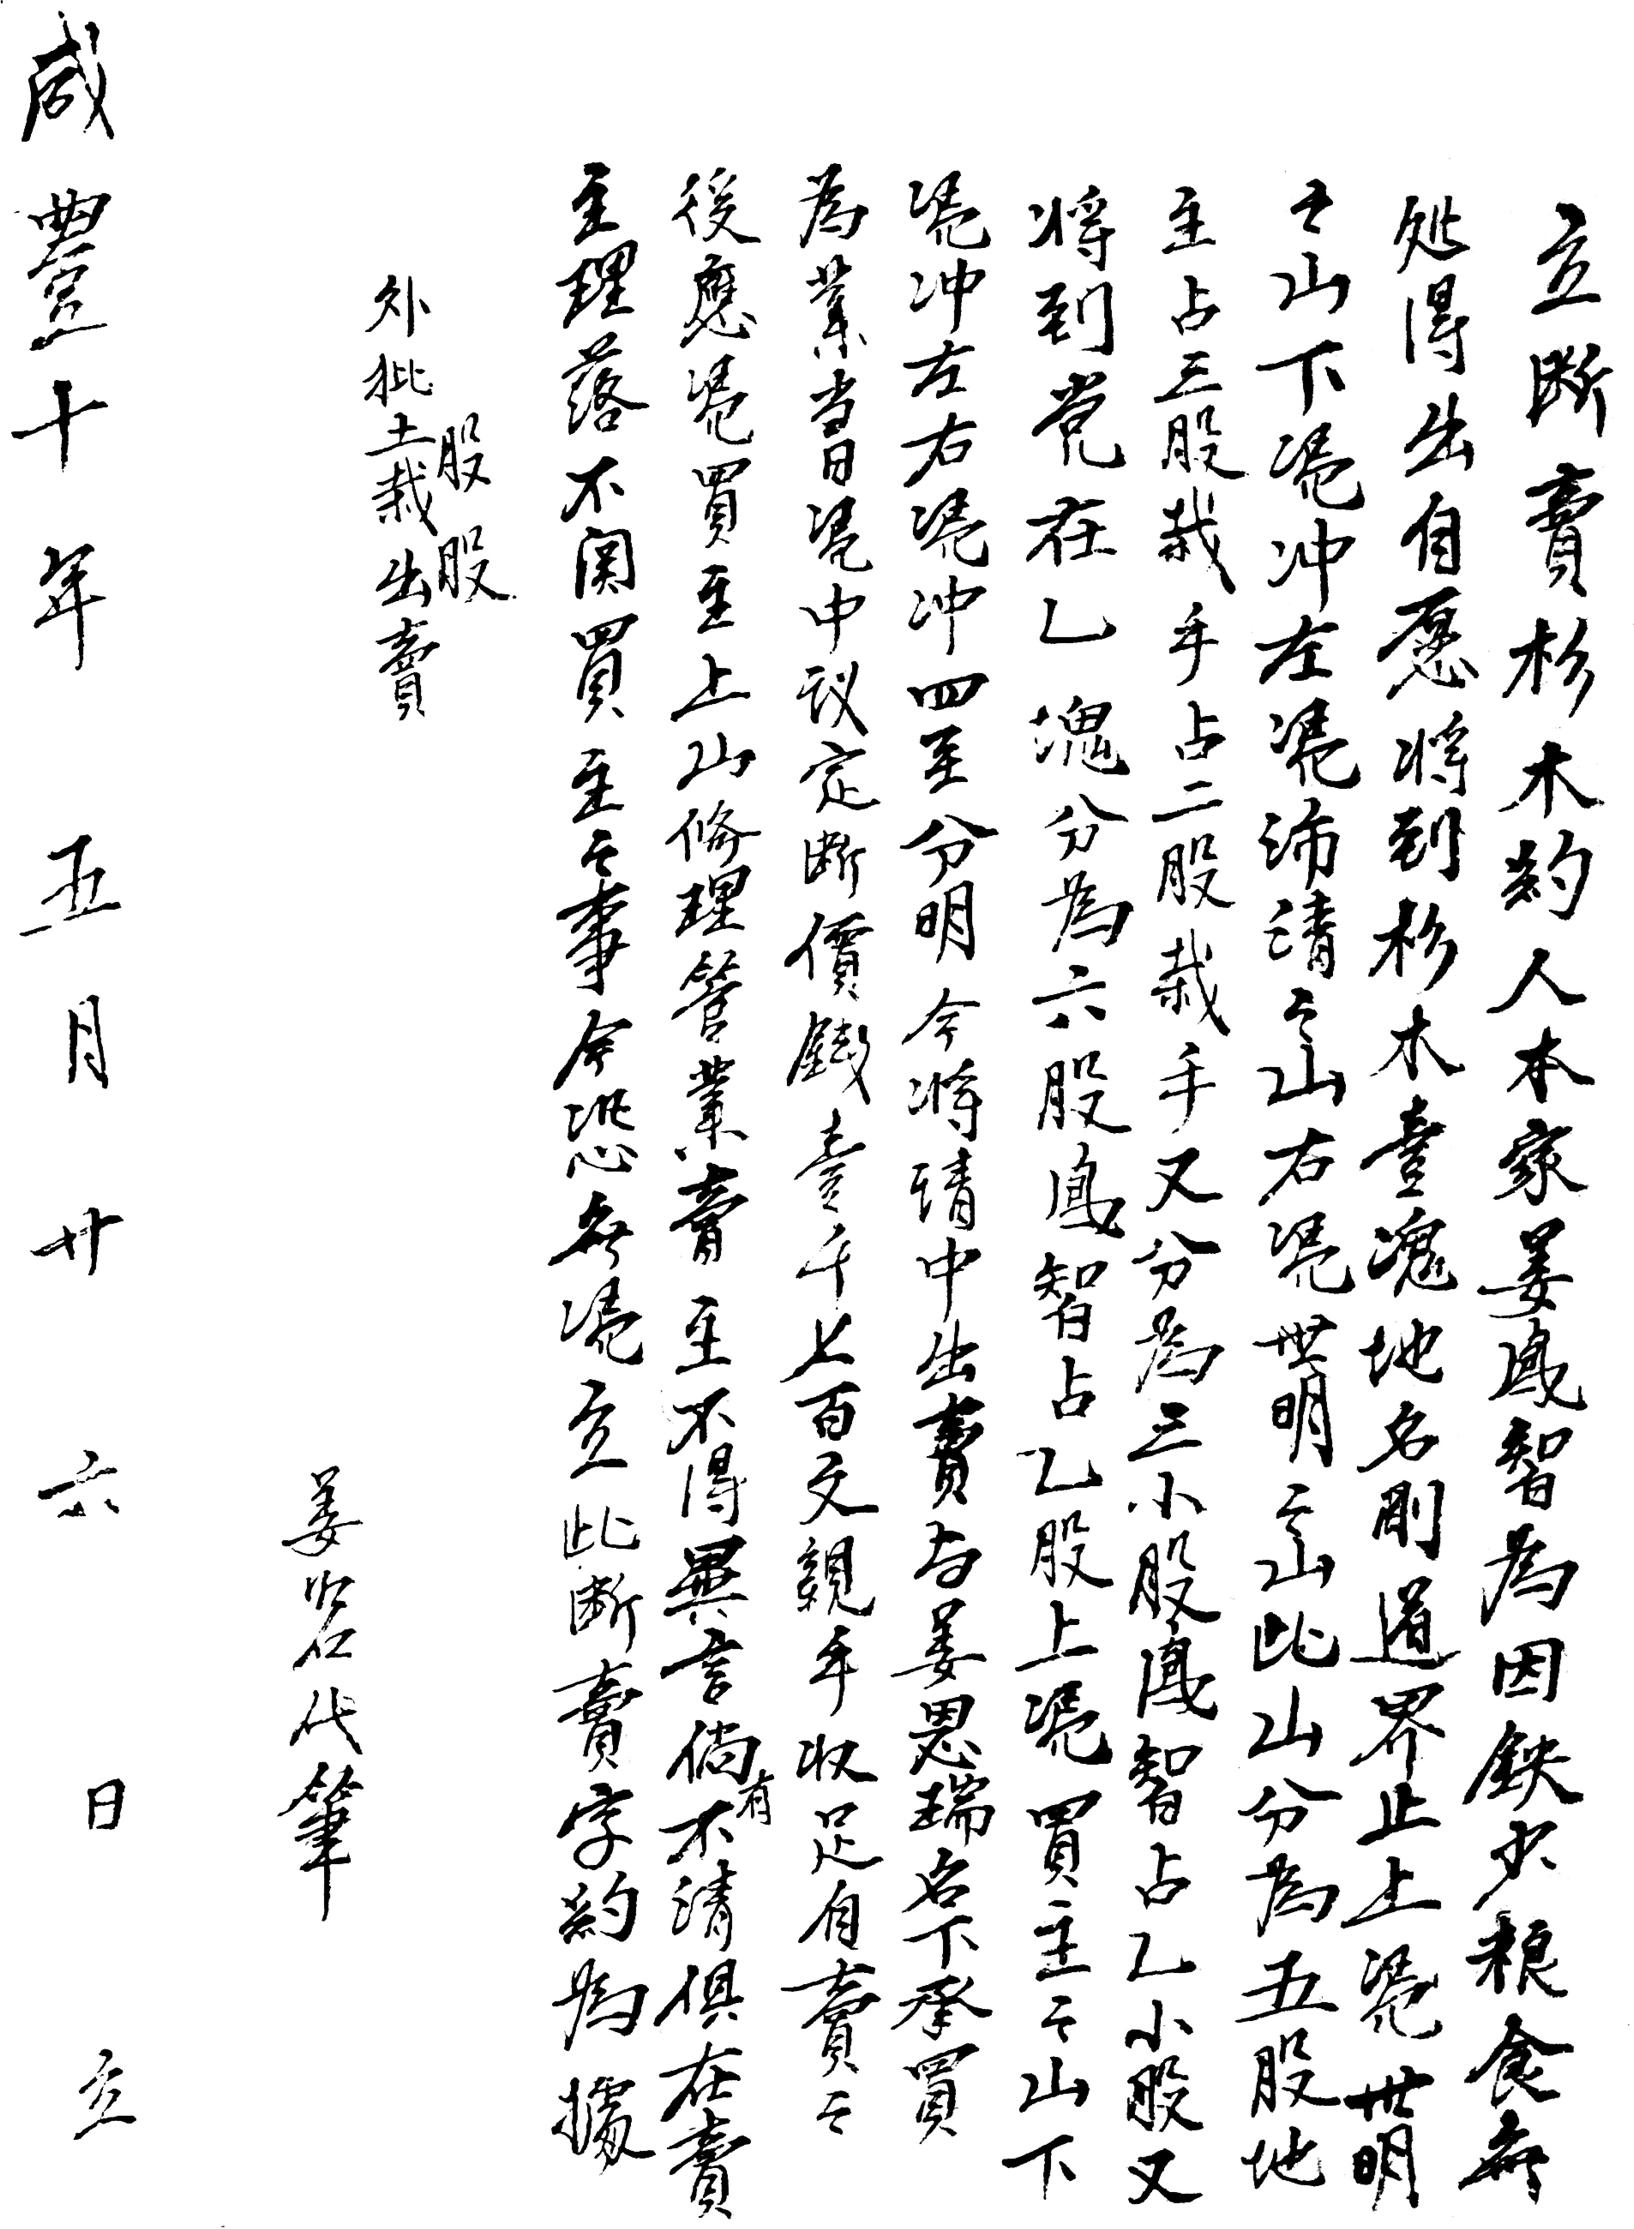 立断賣杉木約人本家姜鳳智為因鈌少粮食無
処得出自愿将到杉木壹塊地名剛道界止上凴世明
之山下凴冲左凴沛清之山右凴世明之山此山分為五股地
主占三股栽手占二股栽手又分為三小股鳳智占乙小股又
将到党在乙塊分為六股鳳智占乙股上凴買主之山下
凴冲左右凴冲四至分明今将請中出賣与姜恩瑞名下承買
為業当日凴中议定断價錢壹千七百文親手收足自賣之
後應凴買主上山修理管業賣主不得異言倘有不清俱在賣
主理落不関買主之事今恐無凴立此断賣字約為據
股股
外批土栽出賣
姜岩代筆
咸豐十年五月廿六日立